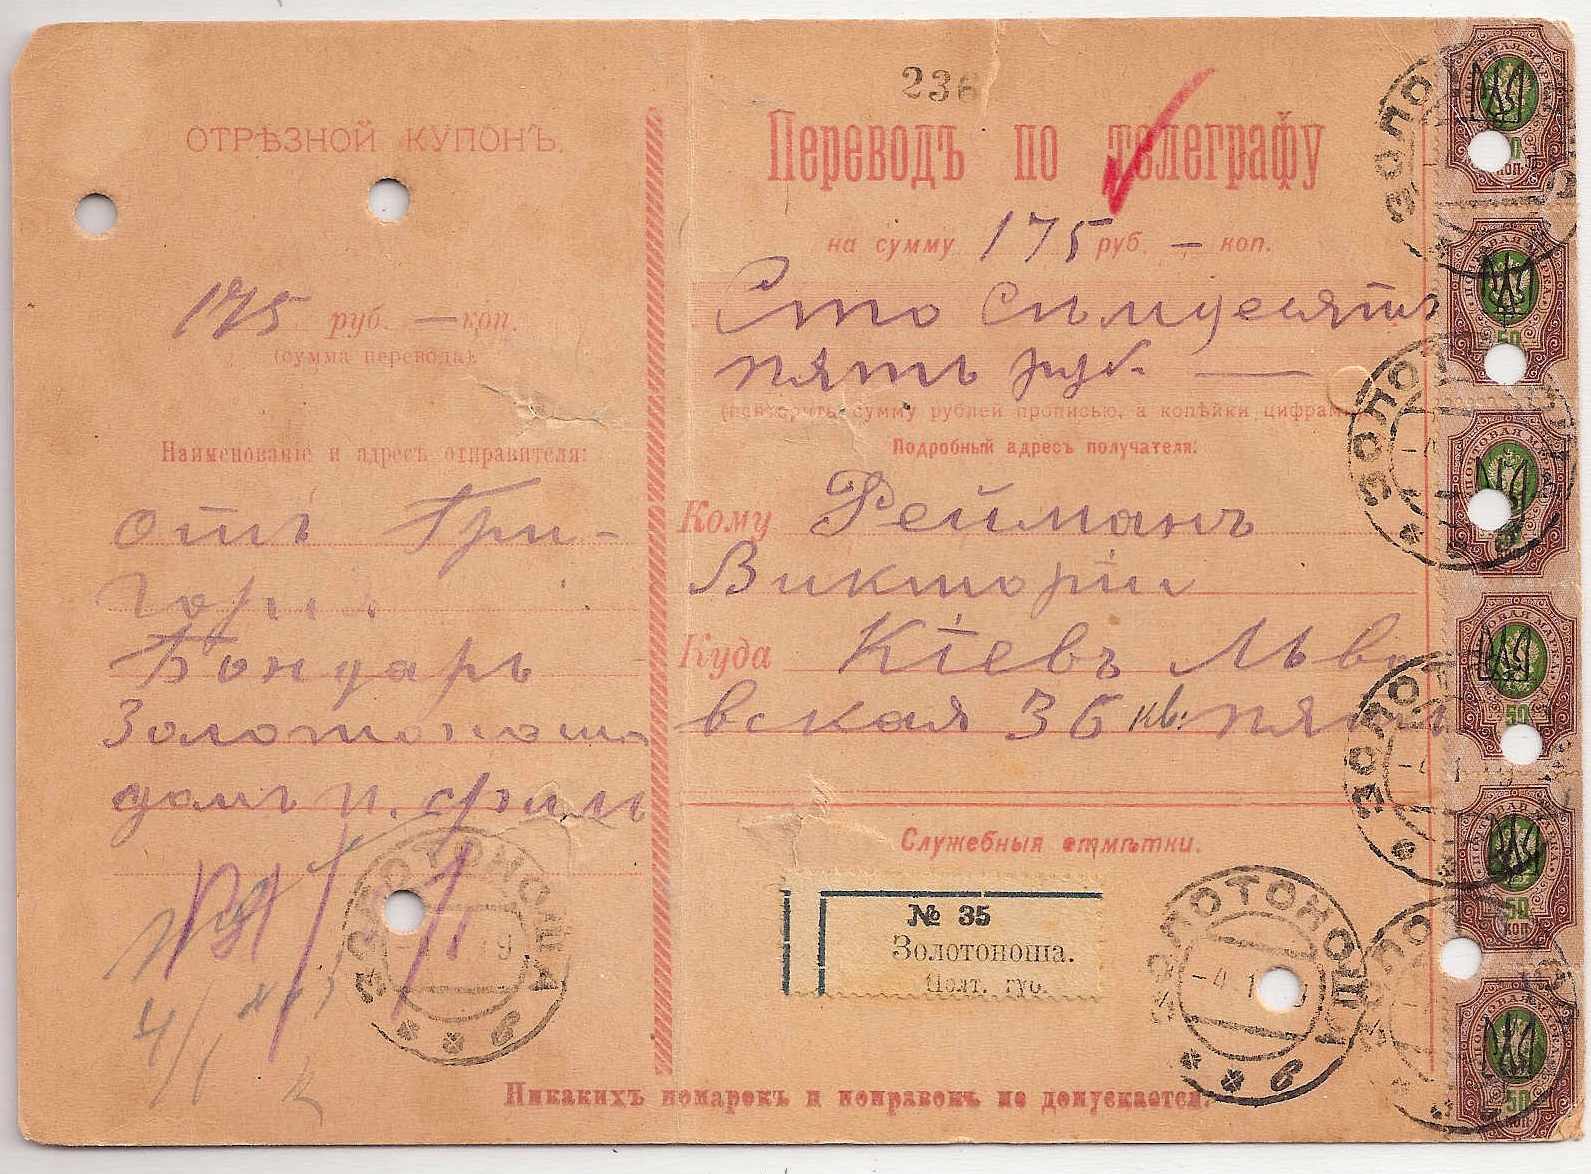 236
ОТРѢЗНОЙ КУПОНЪ.
175 руб. — коп.
(сумма перевода)
Наименованіе и адресъ отправителя:
отъ Гри-
горія
Бондарь
Золотоноша
домъ п.
4/I
Переводъ по телеграфу
на сумму 175 руб. — коп.
Сто семдесятъ
пять руб. —
(повторить сумму рублей прописью, а копѣйки цифрами
Подробный адресъ получателя:
Кому Рейманъ
Викторіи
Куда Кіевъ Льво
вская 36 кв: пять
Служебныя отмѣтки.
№ 35
Золотоноша.
Полт. губ.
Никакихъ помарокъ и поправокъ не допускается.
ЗОЛОТОНОША
в
ЗОЛОТОНОША
-4.1
в
ПОЧТОВАЯ МАРКА
50
КОП